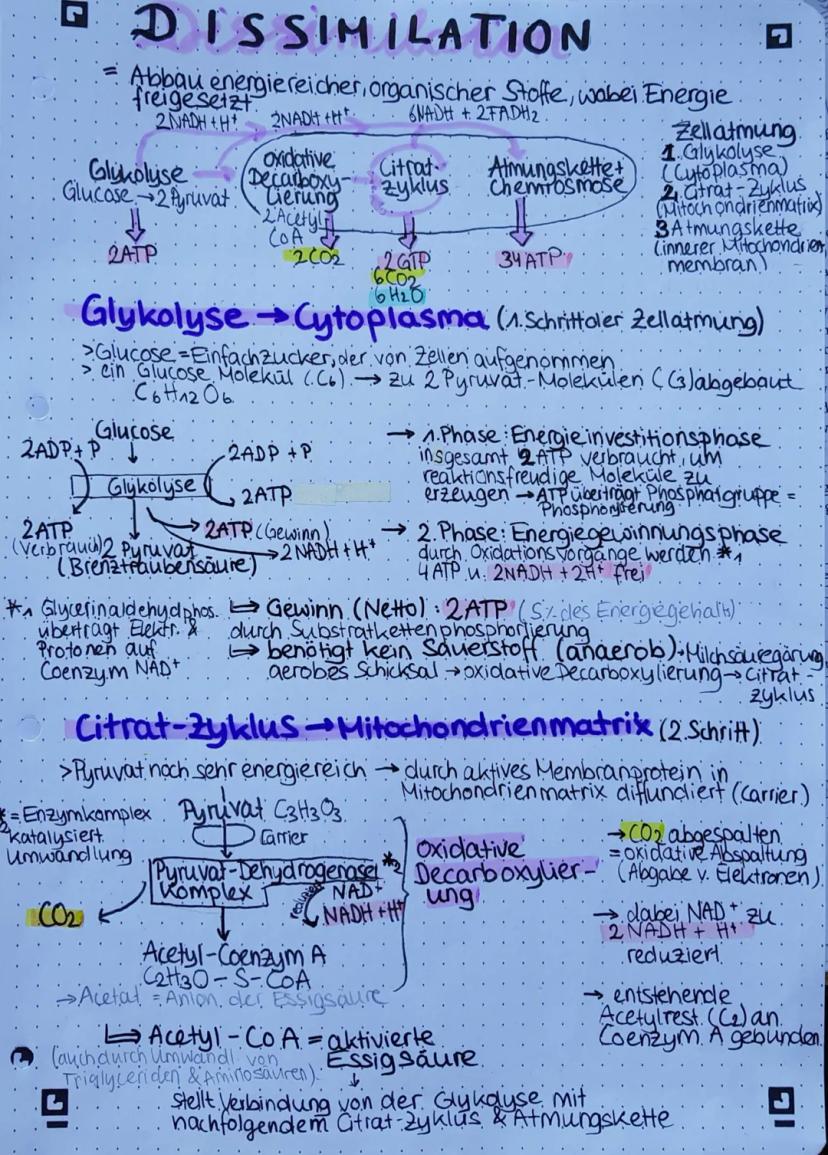 DISSIMILATION
= Abbau energiereicher, organischer Stoffe, wobei Energie
freigesetzt
2NADH + H⁺
2NADH + H⁺
6NADH + 2FADH₂
Glykolyse
Glucose → 2 Pyruvat
2ATP
oxidative
Decarboxy-
lierung
2 Acetyl
CoA
2CO₂
Citrat-
zyklus
2GTP
6CO₂
6H₂O
Atmungskette +
Chemiosmose
34ATP
Zellatmung
1. Glykolyse
(Cytoplasma)
2. Citrat-Zyklus
(Mitochondrienmatrix)
3 Atmungskette
(innerer Mitochondrien
membran)
Glykolyse → Cytoplasma (1. Schritt der Zellatmung)
> Glucose = Einfachzucker, der von Zellen aufgenommen
> ein Glucose Molekül (C₆) → zu 2 Pyruvat-Molekülen (C3) abgebaut
C₆H₁₂O₆
Glucose
2ADP + P
2ADP + P
Glykolyse
2ATP
2ATP
(Verbrauch)
2 Pyruvat
(Brenztraubensäure)
2ATP (Gewinn)
2NADH + H⁺
→ 1. Phase: Energieinvestitionsphase
insgesamt 2ATP verbraucht, um
reaktionsfreudige Moleküle zu
erzeugen → ATP überträgt Phosphatgruppe =
Phosphorylierung
→ 2. Phase: Energiegewinnungsphase
durch Oxidationsvorgänge werden *1
4ATP u. 2NADH + 2H⁺ frei
*1 Glycerinaldehydphos.
überträgt Elektr. &
Protonen auf
Coenzym NAD⁺
↳ Gewinn (Netto): 2ATP (5% des Energiegehalt)
durch Substratkettenphosphorlierung
↳ benötigt kein Sauerstoff (anaerob) → Milchsäuregärung
aerobes Schicksal → oxidative Decarboxylierung → Citrat-
zyklus
Citrat-Zyklus → Mitochondrienmatrix (2. Schritt)
> Pyruvat noch sehr energiereich → durch aktives Membranprotein in
Mitochondrienmatrix diffundiert (Carrier)
*2 = Enzymkomplex
katalysiert
Umwandlung
Pyruvat C₃H₃O₃
Carrier
Pyruvat-Dehydrogenase *2
Komplex
NAD⁺
NADH + H⁺
CO₂
Acetyl-Coenzym A
C₂H₃O - S - CoA
→ Acetat = Anion der Essigsäure
oxidative
Decarboxylier-
ung
→ CO₂ abgespalten
= oxidative Abspaltung
(Abgabe v. Elektronen)
→ dabei NAD⁺ zu
2 NADH + H⁺
reduziert
→ entstehende
Acetylrest (C₂) an
Coenzym A gebunden
↳ Acetyl-CoA = aktivierte
Essigsäure
(auch durch Umwandl. von
Triglyceriden & Aminosäuren)
↓
stellt Verbindung von der Glykolyse mit
nachfolgendem Citrat-Zyklus & Atmungskette